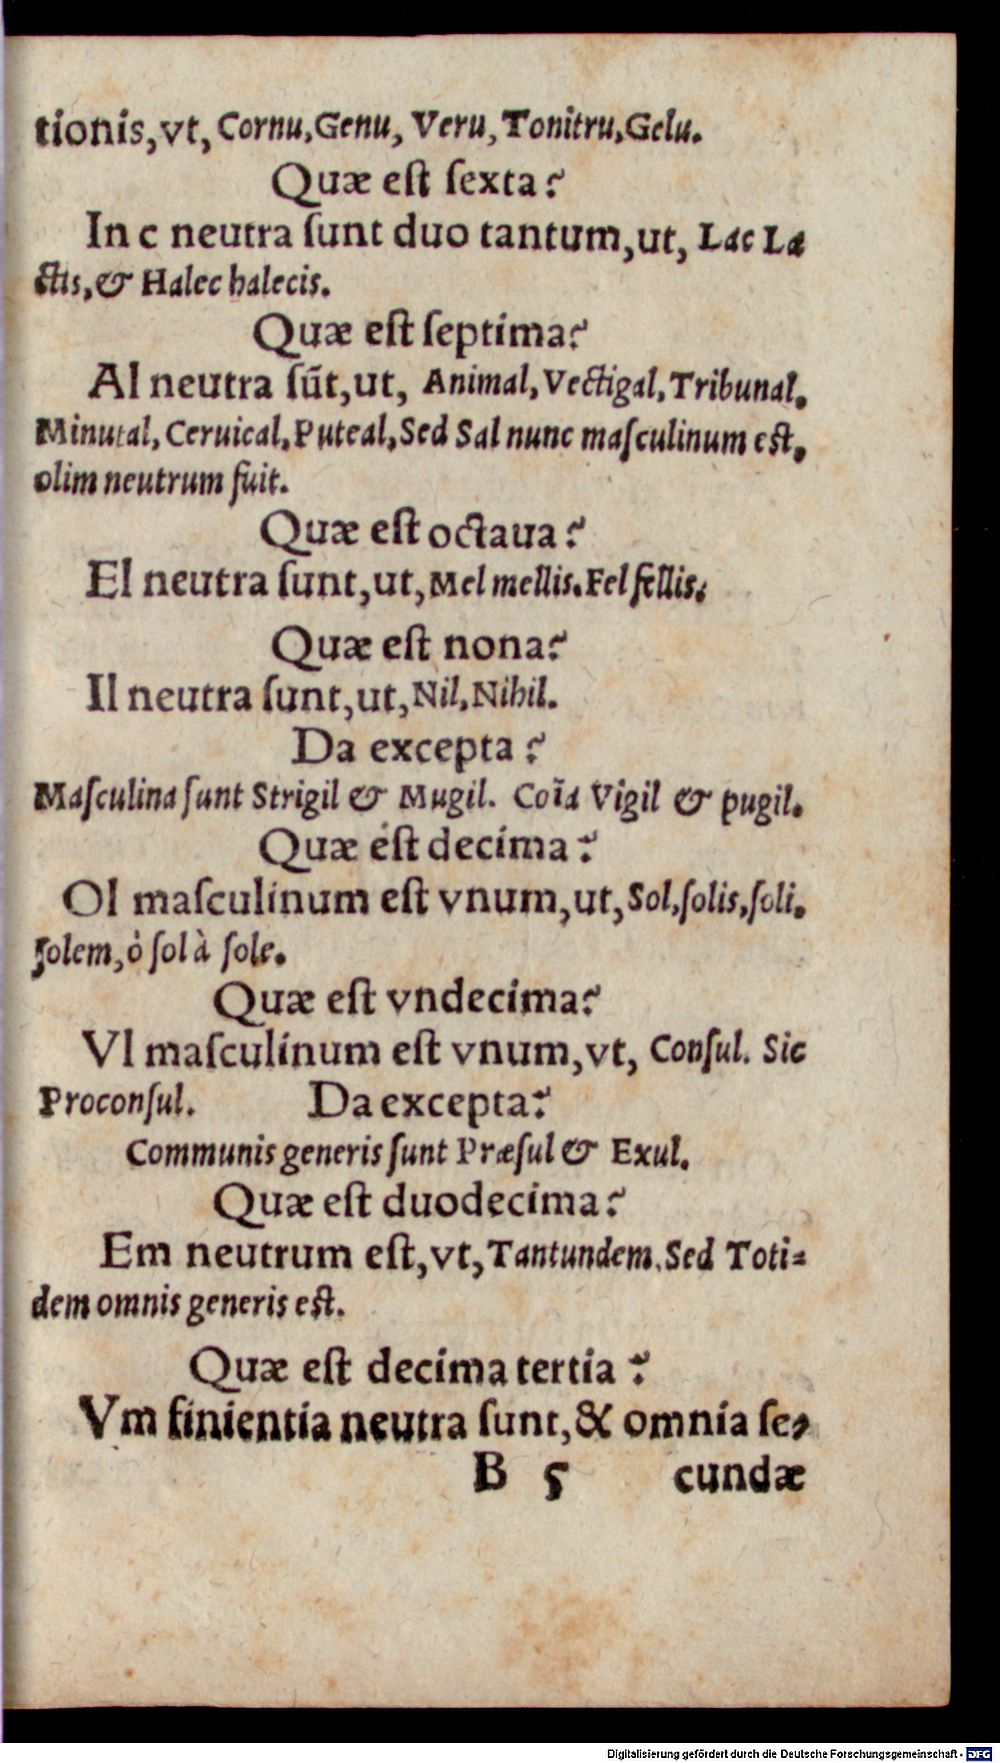 tionis,vt, Cornu,Genu, Veru,Tonitru,Gelu.
Quæ est ſexta?
In c neutra ſunt duo tantum,ut, Lac La
ctis,& Halec halecis.
Quæ est ſeptima?
Al neutra ſũt,ut, Animal,Vectigal,Tribunal.
Minutal, Ceruical,Puteal,Sed Sal nunc maſculinum est,
olim neutrum fuit.
Quæ est octaua?
El neutra ſunt,ut,Mel mellis.Fel fellis.
Quæ est nona?
Il neutra ſunt,ut,Nil,Nihil.
Da excepta?
Maſculina ſunt Strigil & Mugil. Coĩa Vigil & pugil.
Quæ est decima?
Ol maſculinum est vnum,ut,Sol,ſolis,ſoli.
ſolem,ò ſol à ſole.
Quæ est vndecima?
Vl maſculinum est vnum,vt, Conſul. Sic
Proconſul. Da excepta?
Communis generis ſunt Præſul & Exul.
Quæ est duodecima?
Em neutrum est,vt,Tantundem.Sed Toti⸗
dem omnis generis est.
Quæ est decima tertia?
Vm finientia neutra ſunt,& omnia ſe⸗
B 5 cundæ
Digitalisierung gefördert durch die Deutsche Forschungsgemeinschaft - DFG